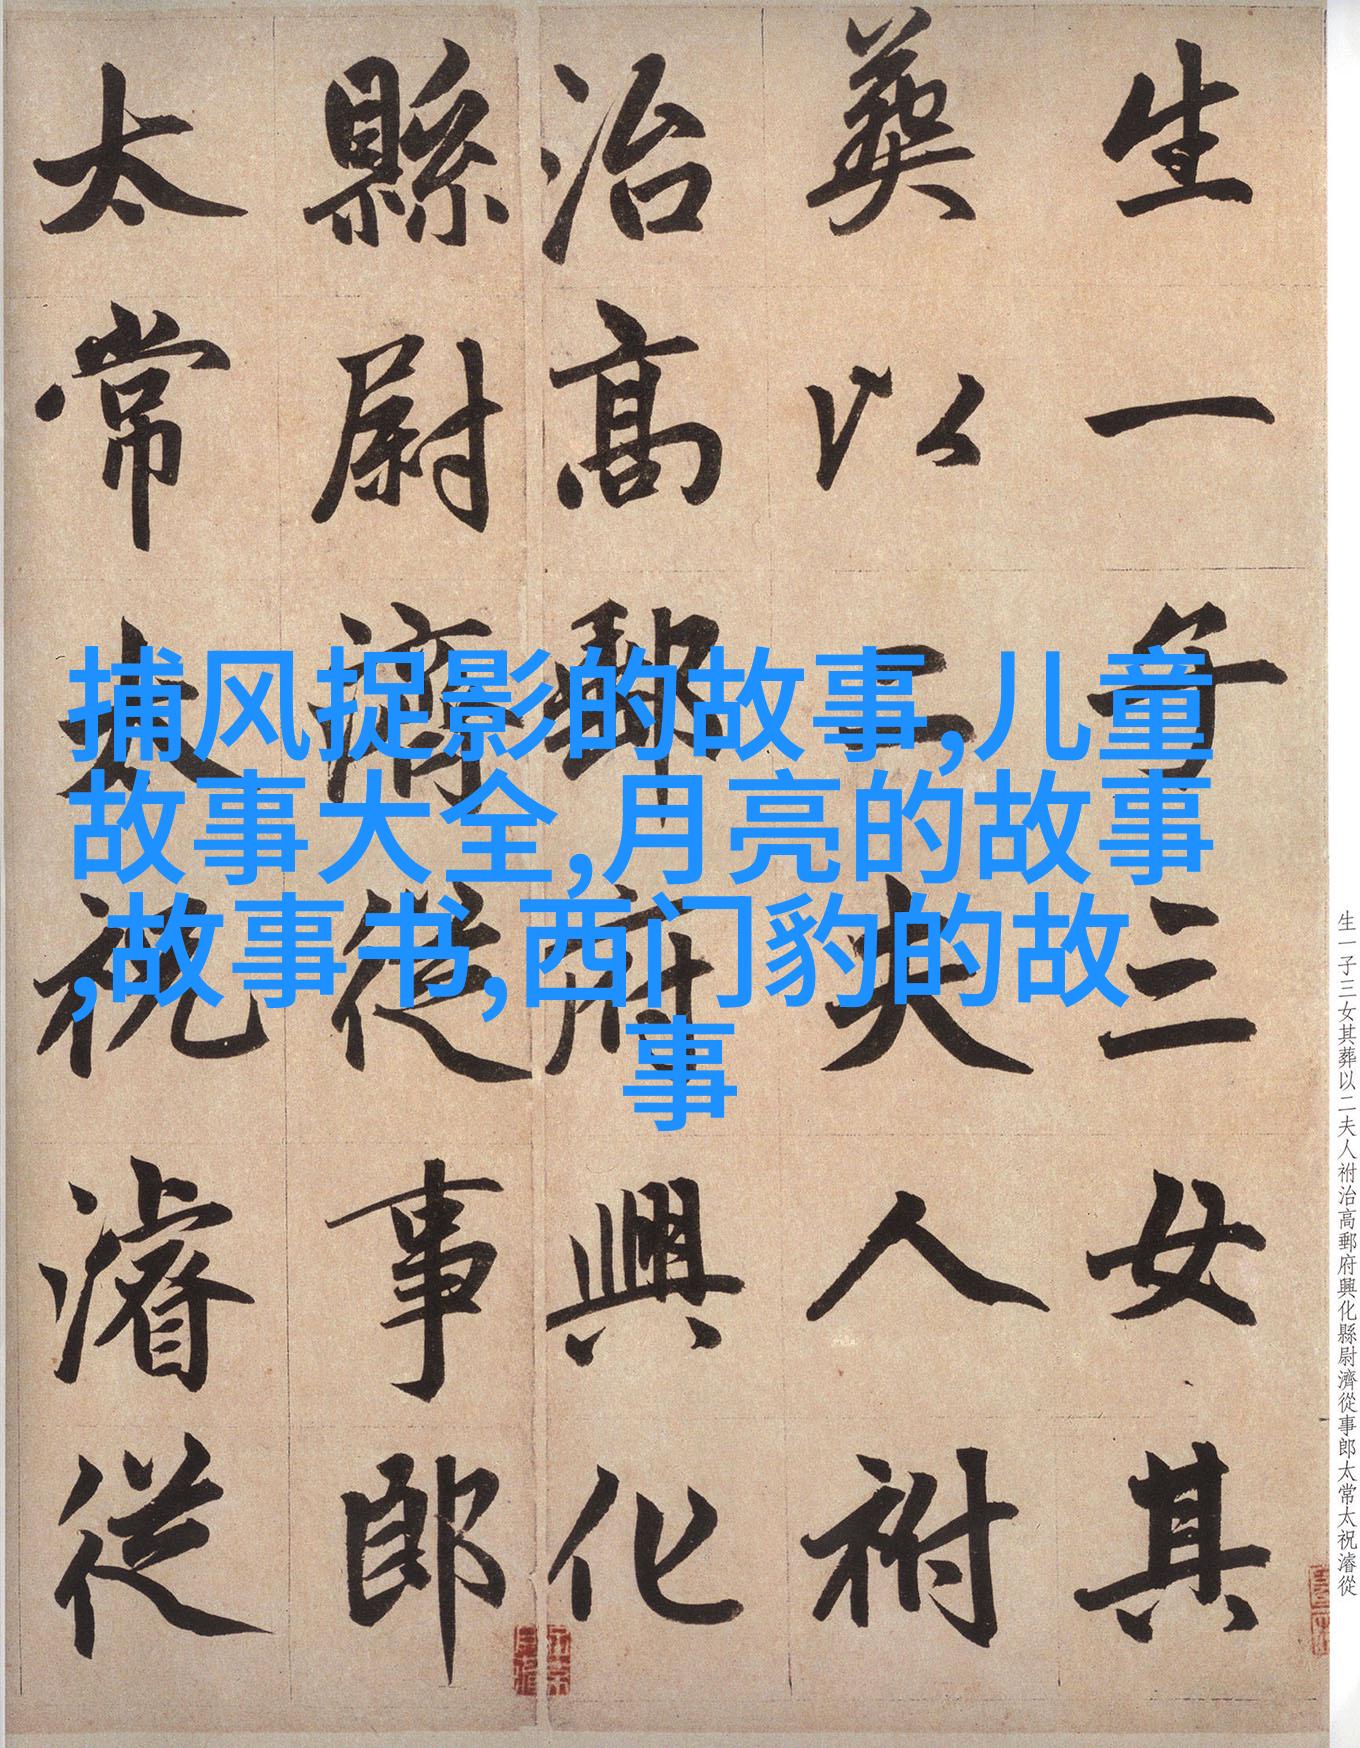 生一子三女其
葬以二夫人祔
治高郵府興化
縣尉濟從事郎
太常太祝濬從
捕风捉影的故事,儿童
故事大全,月亮的故事
,故事书,西门豹的故
事
生一子三女其葬以二夫人祔治高郵府興化縣尉濟從事郎太常太祝濬從